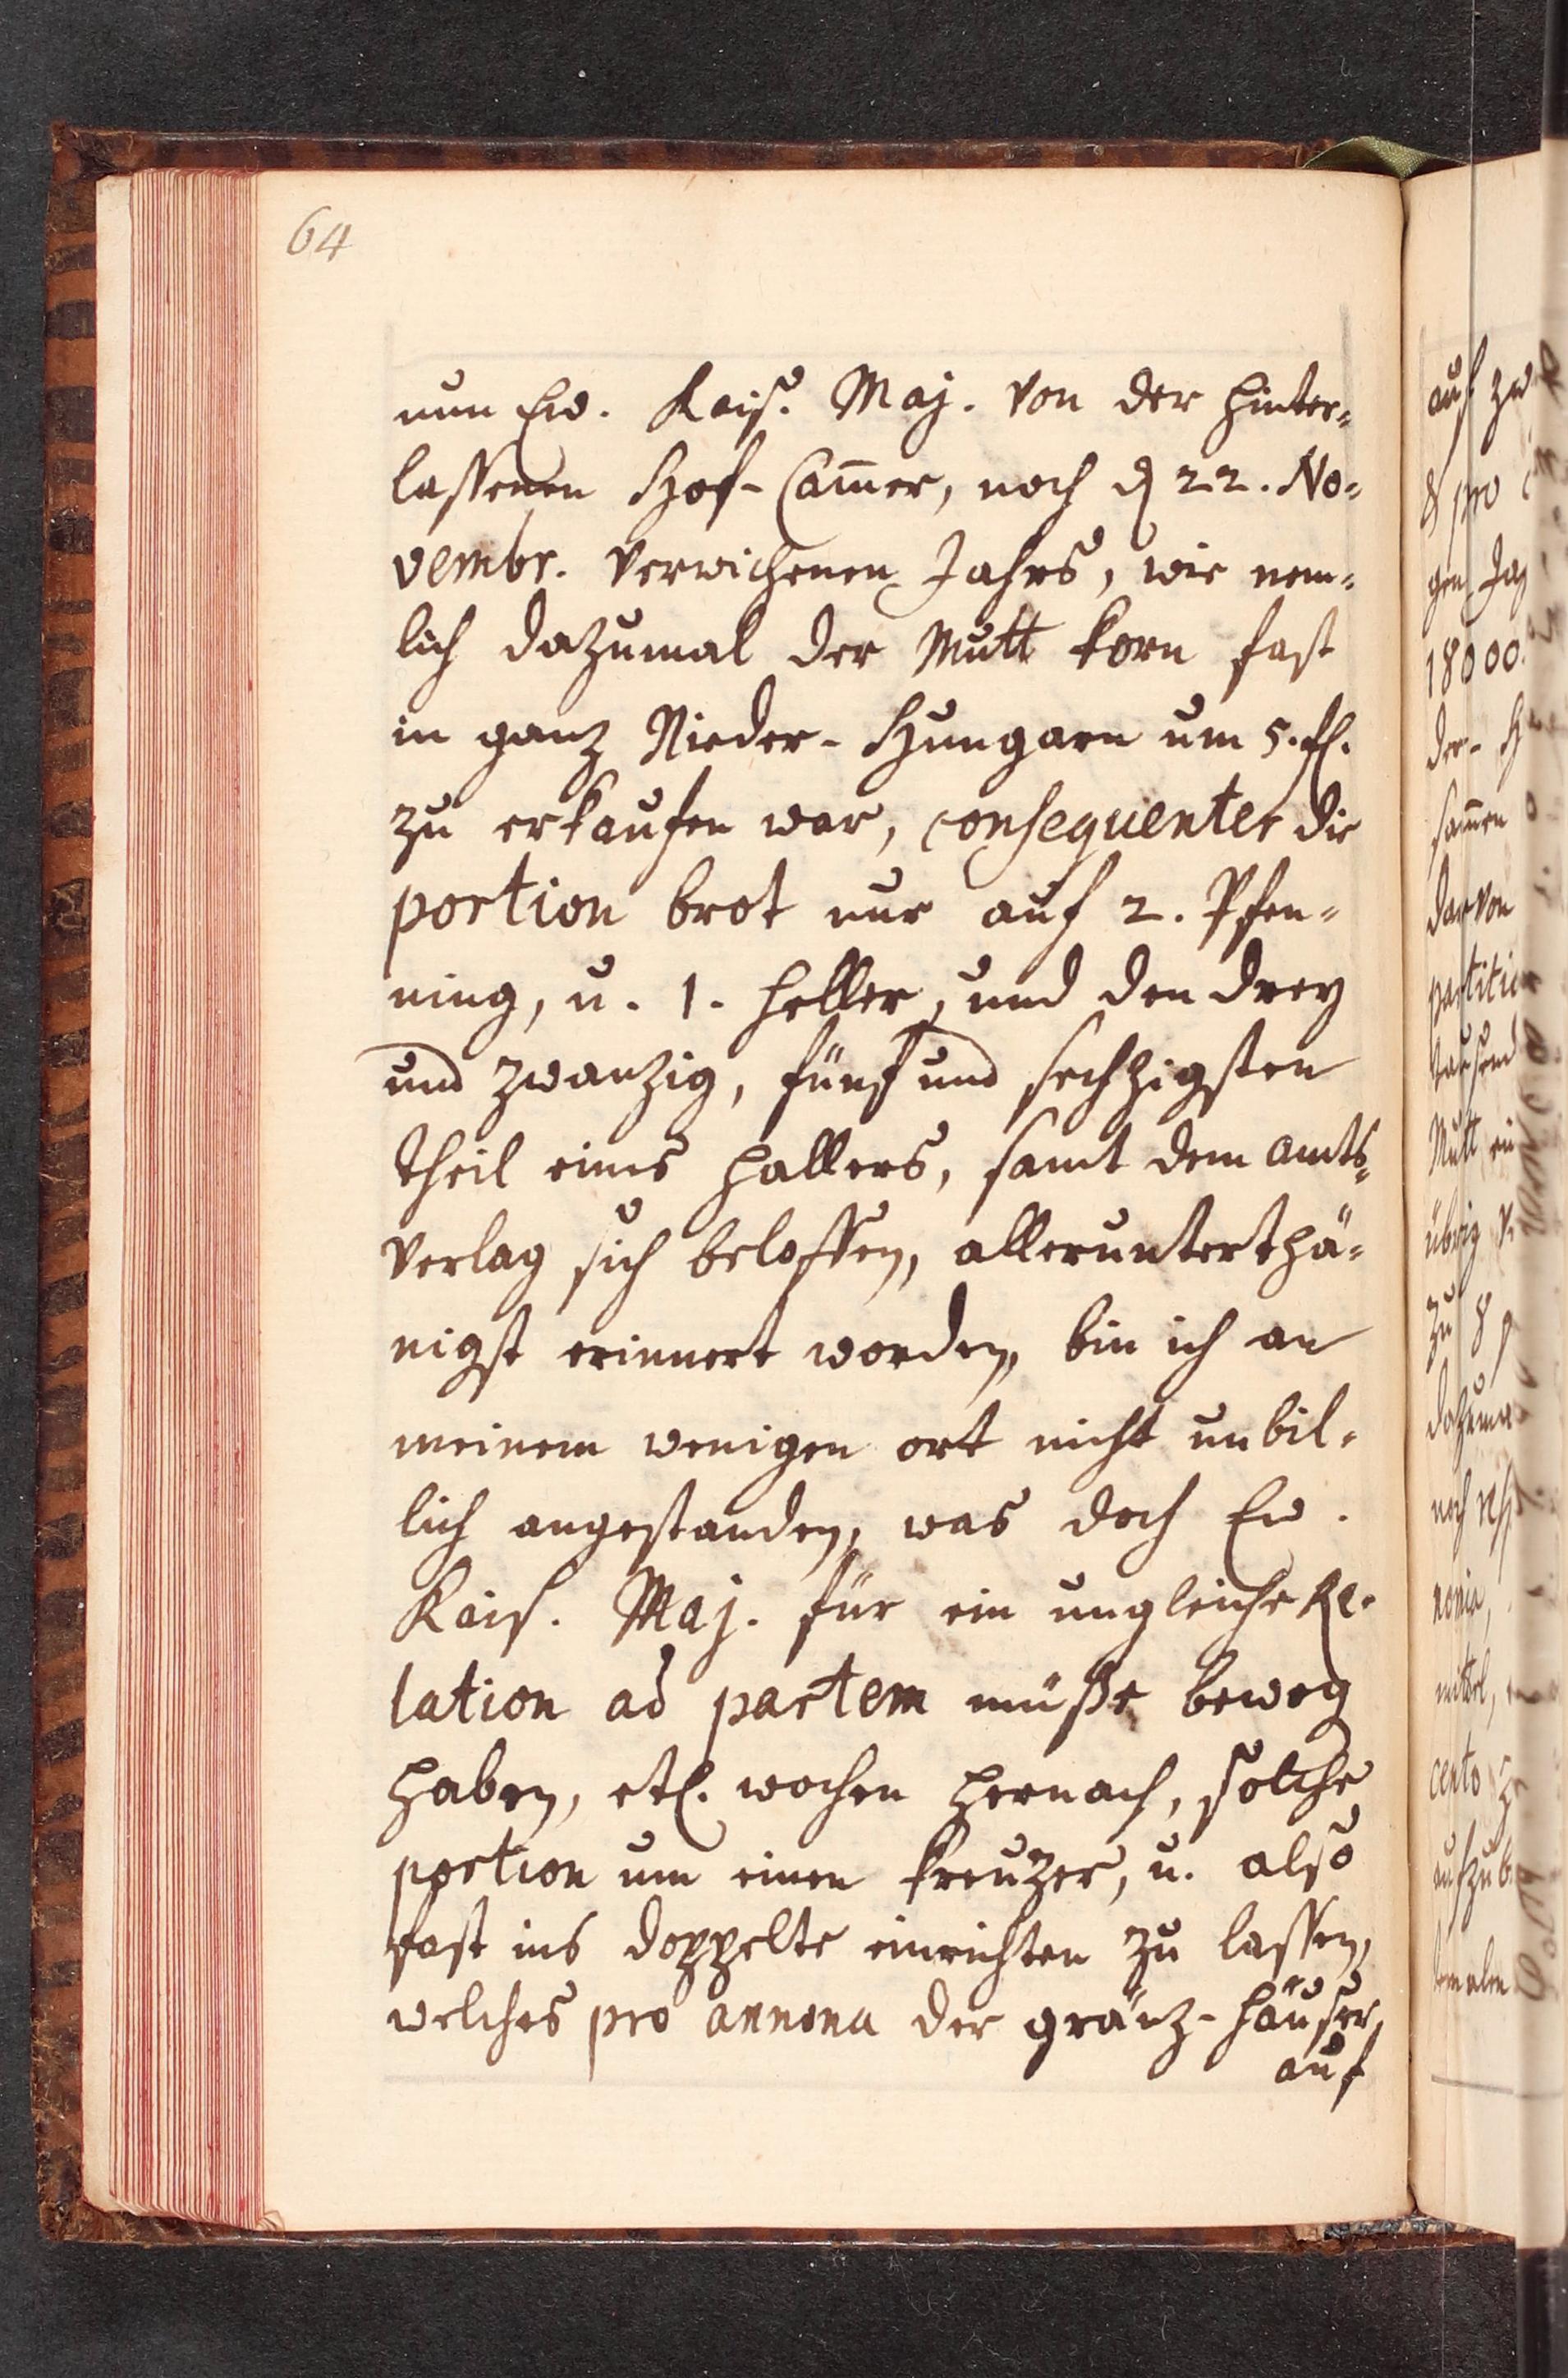 64
nun Ew. Kais. Maj. von der hinter-
lassenen Hof-Cam̄er, noch d 22. No-
vembr. verwichenen Jahrs, wie nem-
lich dazumal der Mutt korn fast
in ganz Nieder-Hungarn um 5. fl.
zu erkaufen war, consequenter die
portion brot nur auf 2. Pfen-
ning, u. 1. heller, und den drey
und zwanzig, fünf und sechzigsten
theil eines hallers, samt dem amts-
verlag sich beloffen, allerunterthä-
nigst erinnert worden, bin ich an
meinem wenigen ort nicht unbil-
lich angestanden, was doch Ew.
Kais. Maj. für ein ungleiche Re-
lation ad partem müße bewog
haben, etl. wochen hernach, solche
portion um einen kreuzer, u. also
fast ins doppelte einrichten zu lassen,
welches pro annona der gränz-häuser,
auf
auf zw
& pro
gen Ja
18000.
der- H
sam̄en
darvon
partitio
tausend
Mutt ein
übrig
zu 8
dazuma
noch
nonia,
mittel,
cento
aufzub